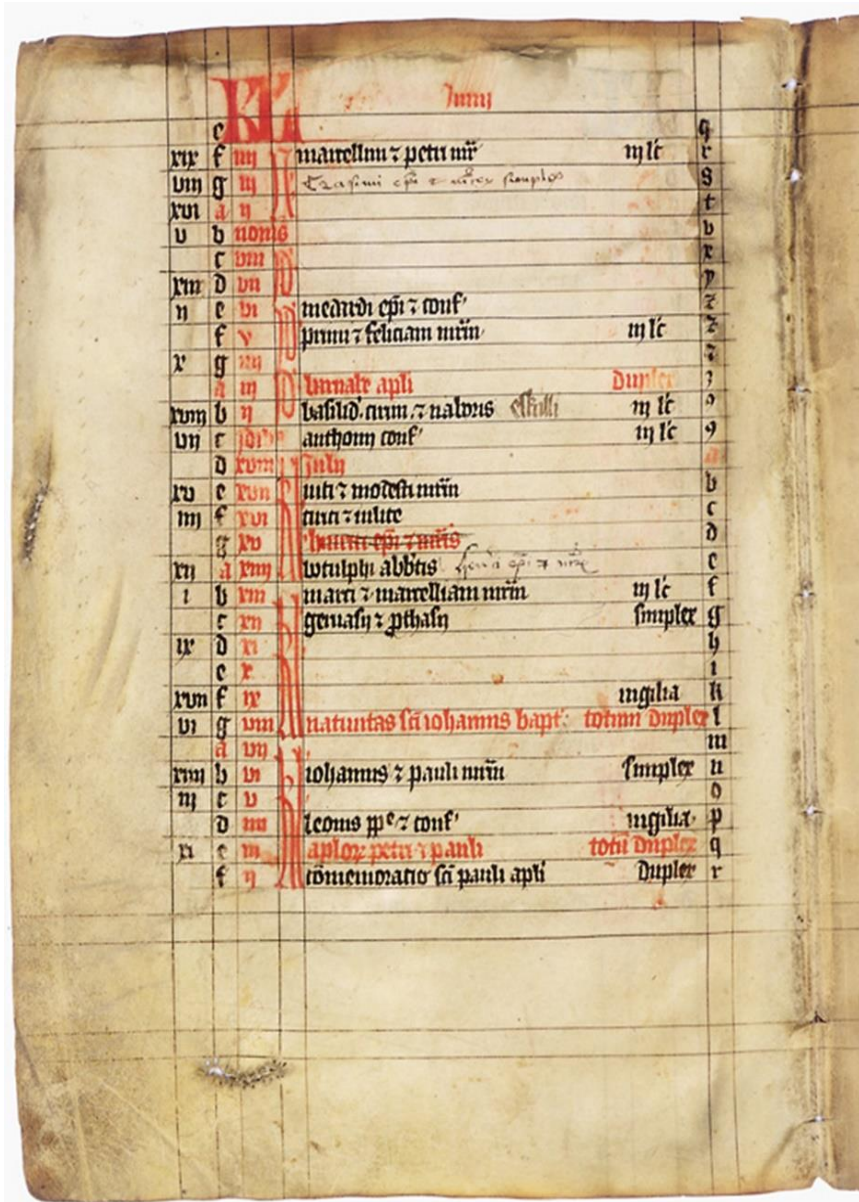 KL Junij
e q
xix f iiij N marcellini ⁊ petri mr̄ iij lc̄ r
viij g iij Erasimi ep̄i ⁊ simplex s
xvi a ij t
v b nonis v
c viij x
xiij d vij y
ij e vi medardi ep̄i ⁊ conf' z
f v primi ⁊ feliciani mr̄m iij lc̄ ⁊
x g iiij
a iij barnabe apli duplex
xviij b ij basilid. cirini ⁊ naboris eskilli iij lc̄ ꝰ
vij c idꝰ anthonij conf' iij lc̄ 9
d xviij Julij a
xv e xvij uiti ⁊ modesti mr̄m b
iiij f xvi cirici ⁊ iulite c
g xv ep̄i ⁊ mr̄is d
xij a xiiij botulphi abb̄tis ep̄i ⁊ e
i b xiij marci ⁊ marcelliani mr̄m iij lc̄ f
c xij geruasij ⁊ ꝓthasij simplex g
ix d xi h
e x i
xvij f ix uigilia k
vi g viij natiuitas sc̄i iohannis bapt' totum duplex l
a vij m
xiiij b vi iohannis ⁊ pauli mr̄m simplex n
iij c v o
d iiij leonis ppe ⁊ conf' uigilia p
xi e iij aplōꝝ petri ⁊ pauli totū duplex q
f ij cōmemoratio sc̄i pauli apli duplex r